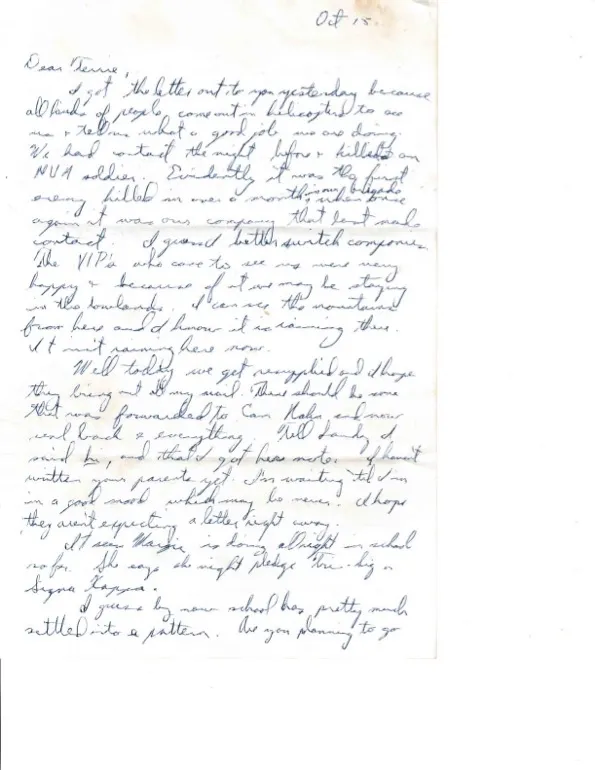 Oct 15.
Dear Terrie,
I got the letter out to you yesterday because
all kinds of people come out in helicopters to see
us + tell us what a good job we are doing.
We had contact the night before + killed an
NVA soldier. Evidently it was the first
enemy killed in over a month in our brigade
again it was our company that last made
contact. I guess I better switch companies.
The VIP's who came to see us were very
happy + because of it we may be staying
in the lowlands. I can see the mountains
from here and I know it is raining there.
It isn't raining here now.
Well today we get resupplied and I hope
they bring out all my mail. There should be some
that was forwarded to Cam Rahn and now
back & everything. Tell Sandy I
said hi, and that I got her note. I haven't
written your parents yet. I'm waiting 'til I'm
in a good mood which may be never. I hope
they aren't expecting a letter right away.
It seems Margie is doing allright in school
so far. She says she might pledge Tri-Sig or
Sigma Kappa.
I guess by now school has pretty much
settled into a pattern. Are you planning to go